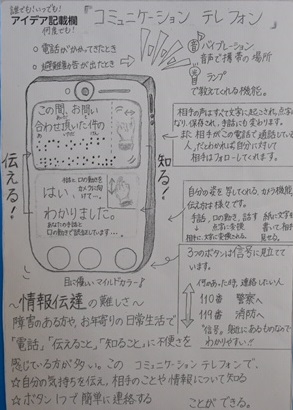 誰でも!いつでも!
何度でも!
アイデア記載欄
『コミュニケーション テレフォン』
○ 電話がかかってきたとき
○ 避難警告が出たとき
音 バイブレーション
音声で携帯の場所
光 ランプ
で教えてくれる機能。
この間、お問い
合わせ頂いた件の
はい
わかりました。
伝える!
知る!
相手の声はすべて文字に起こされ、点字に
なり、保存され、手話にも変わります。
また 相手がこの電話で通話している
人、だとわかれば、自分に対して
相手はフォローしてくれます。
自分の姿を写してくれる、カメラ機能。
伝え方は 様々です。
手話、口の動き、話す
3つのボタンは信号に見立てて
います。
何のあった時、連絡したい人
110番 警察へ
119番 消防へ
『信号』身近にあるものなので
わかりやすい!!
目に優しいマイルドカラー♪
~情報伝達の難しさ~
障害のある方や、お年寄りの日常生活で
「電話」「伝えること」「知ること」に不便さを
感じている方が多い。この コミュニケーションテレフォンで、
☆自分の気持ちを伝え、相手のことや情報について知る
☆ボタン1つで簡単に連絡する
ことができる。